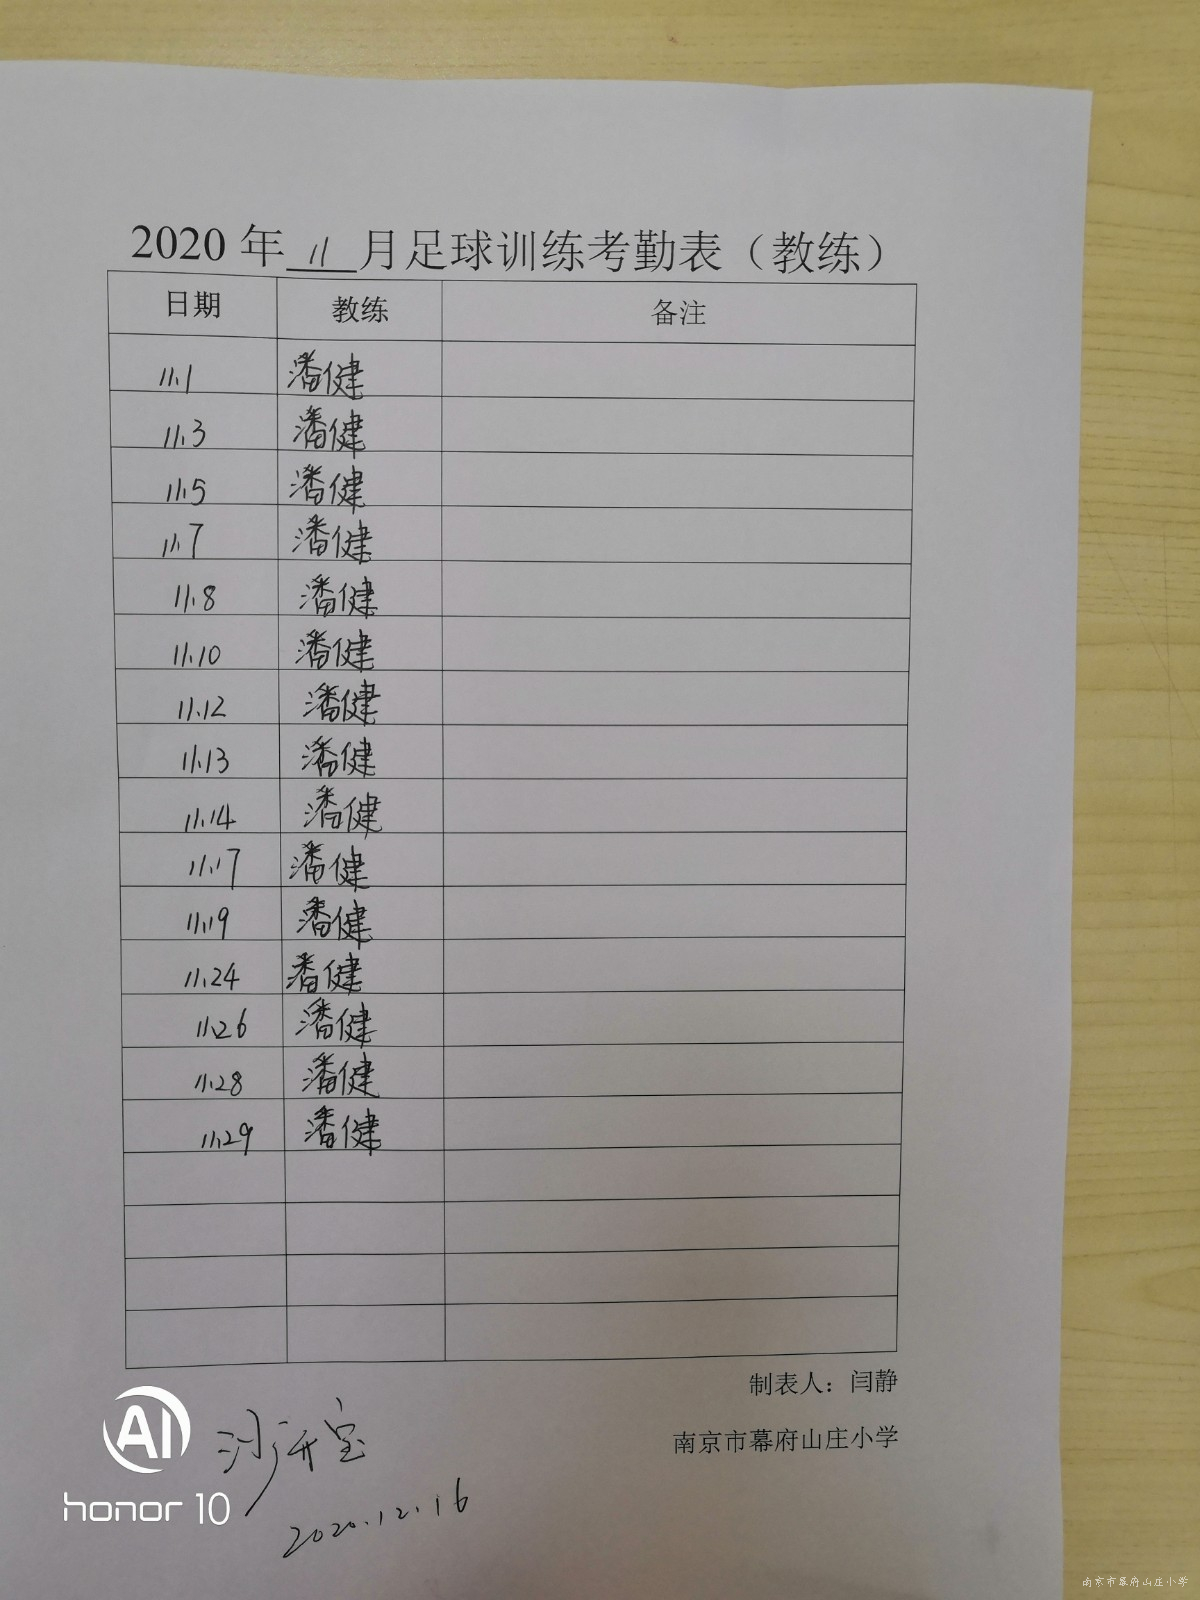 2020 年 11 月足球训练考勤表（教练）
日期 教练 备注
11.1 潘健
11.3 潘健
11.5 潘健
11.7 潘健
11.8 潘健
11.10 潘健
11.12 潘健
11.13 潘健
11.14 潘健
11.17 潘健
11.19 潘健
11.24 潘健
11.26 潘健
11.28 潘健
11.29 潘健
制表人：闫静
南京市幕府山庄小学
AI
honor 10
2020.12.16
南京市幕府山庄小学